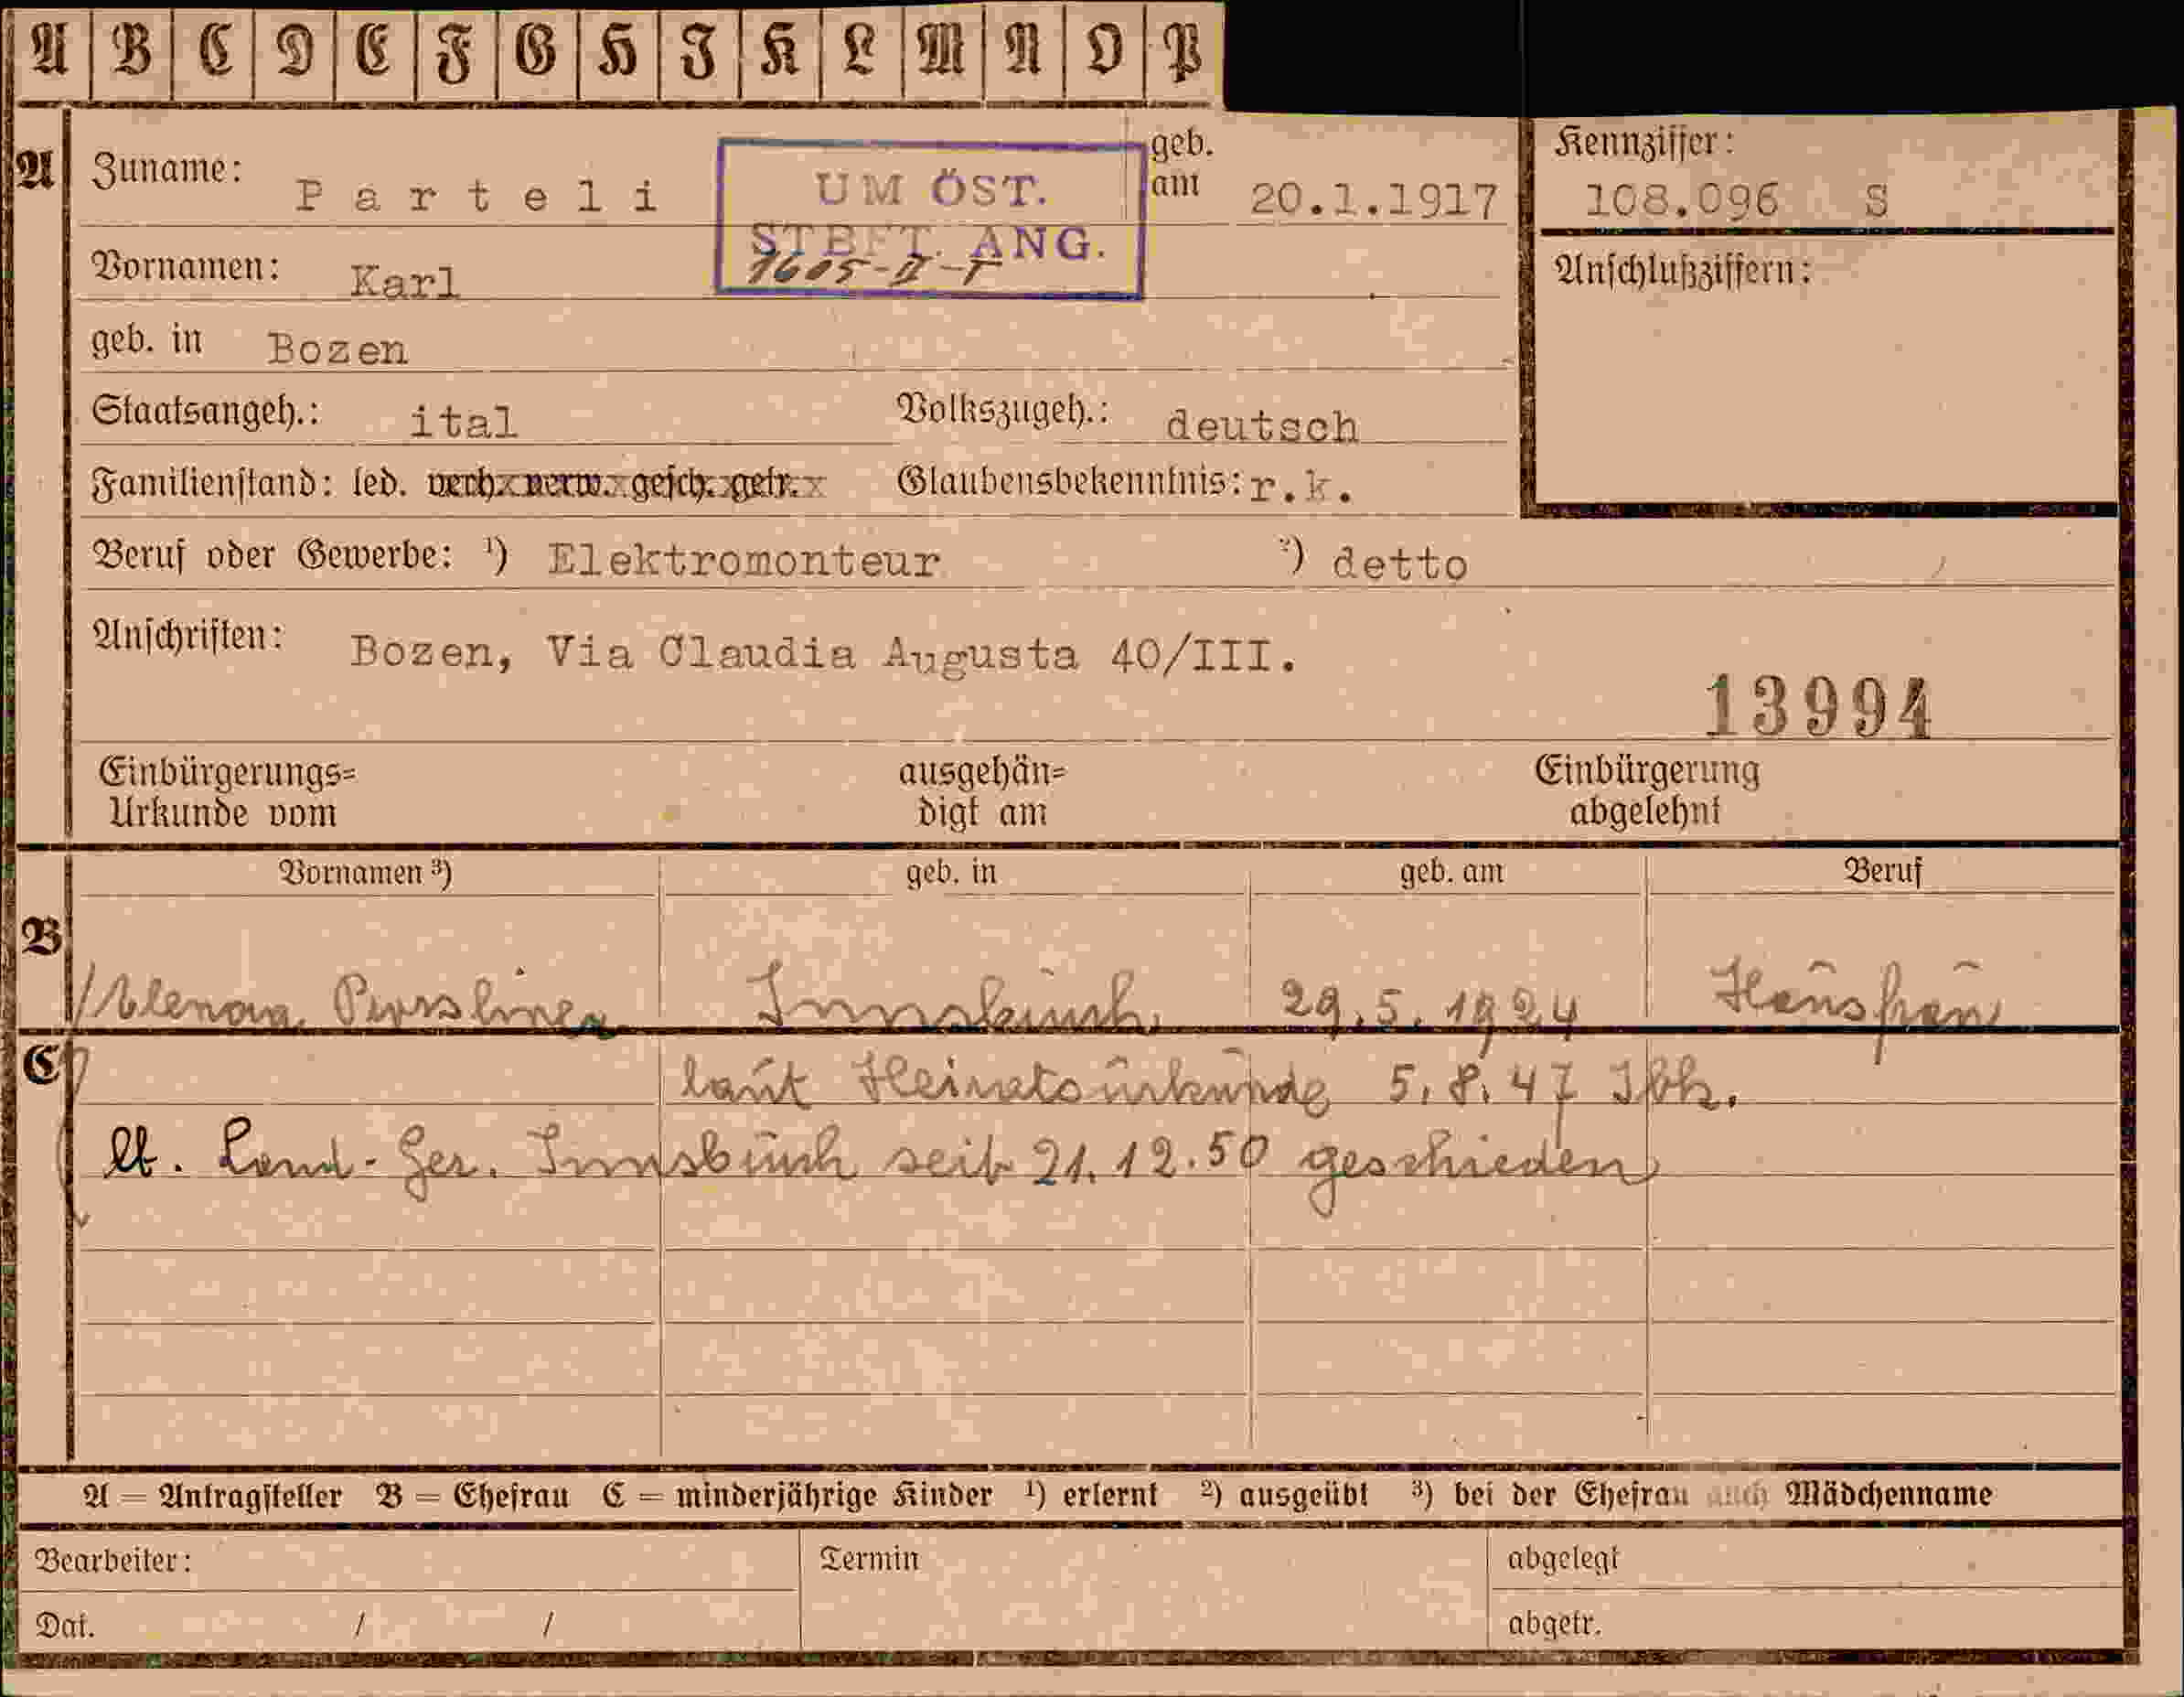 A B C D E F G H I K L M N O P
A Zuname: Parteli geb. am 20.1.1917 Kennziffer: 108.096 S
UM ÖST.
STBFT. ANG.
1605-II-T
Vornamen: Karl Anschlußziffern:
geb. in Bozen
Staatsangeh.: ital Volkszugeh.: deutsch
Familienstand: led. verh. verw. gesch. getr. Glaubensbekenntnis: r.k.
Beruf oder Gewerbe: ¹) Elektromonteur ²) detto
Anschriften: Bozen, Via Claudia Augusta 40/III.
13994
Einbürgerungs= ausgehän= Einbürgerung
Urkunde vom digt am abgelehnt
Vornamen ³) geb. in geb. am Beruf
B Innsbruck 29.5.1924 Hausfrau
C laut Heiratsurkunde 5.8.47 Ibk.
lt. Land-Ger. Innsbruck seit 21.12.50 geschieden
A = Antragsteller B = Ehefrau C = minderjährige Kinder ¹) erlernt ²) ausgeübt ³) bei der Ehefrau auch Mädchenname
Bearbeiter: Termin abgelegt
Dat. / / abgetr.